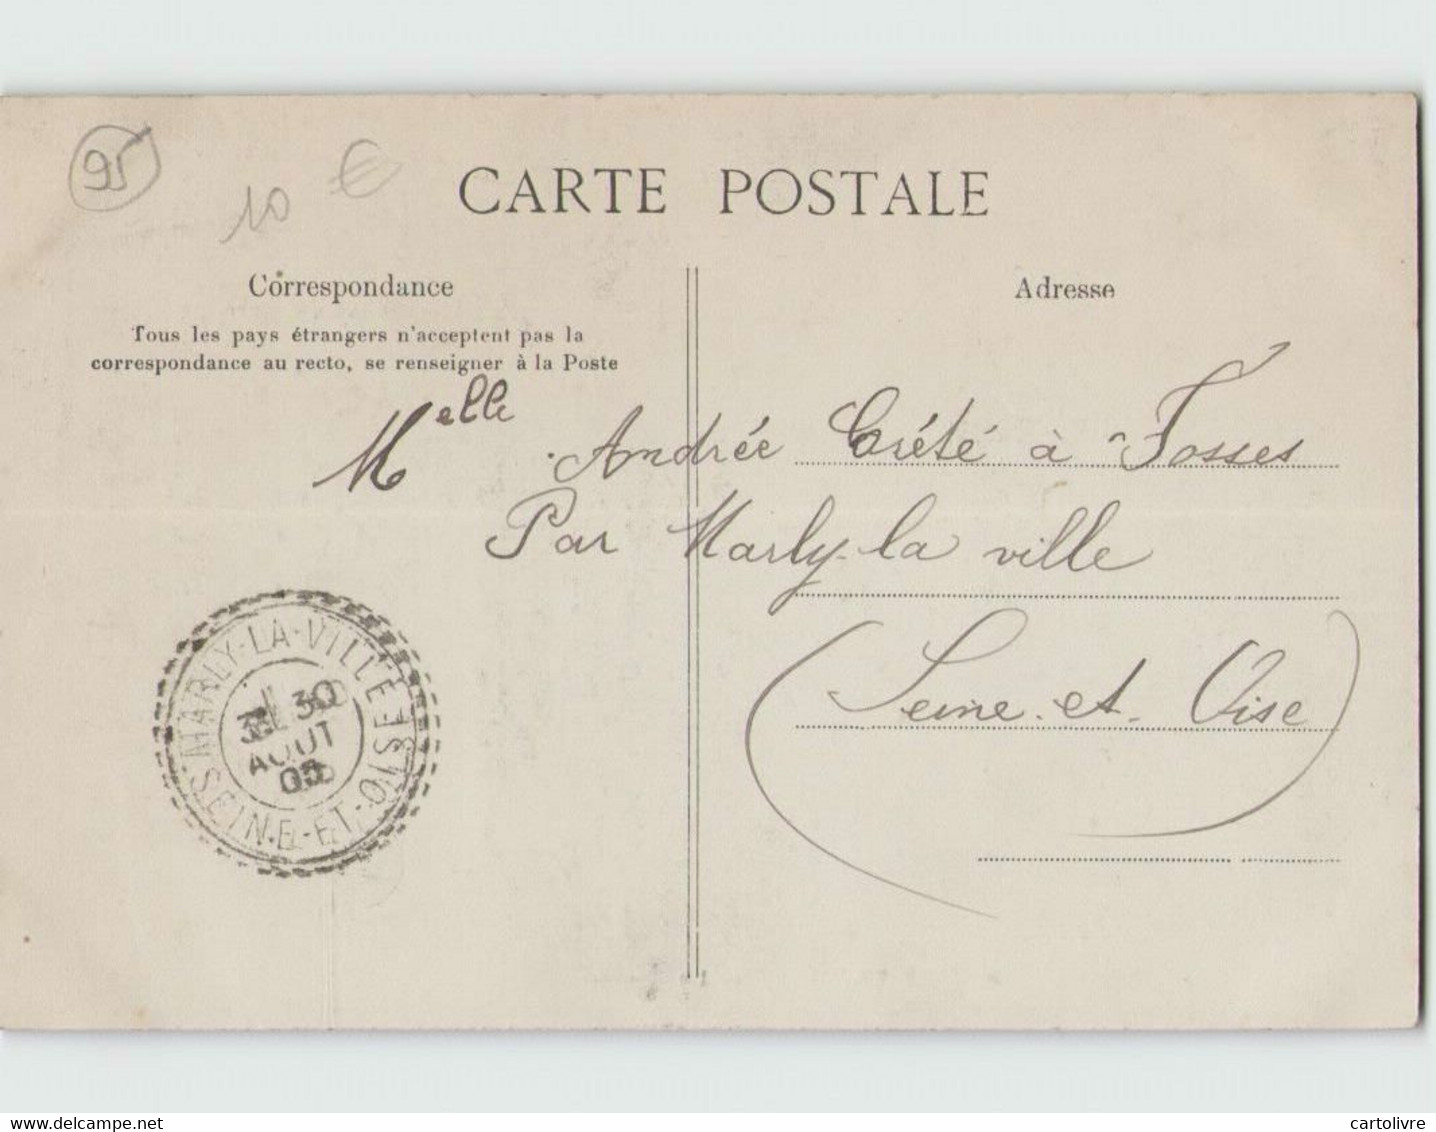 95
10 €
CARTE POSTALE
Correspondance
Tous les pays étrangers n'acceptent pas la
correspondance au recto, se renseigner à la Poste
Adresse
Melle Andrée Crété à Fosses
Par Marly-la ville
(Seine et Oise)
MARLY-LA-VILLE
30
AOUT
SEINE-ET-OISE
www.delcampe.net
cartolivre